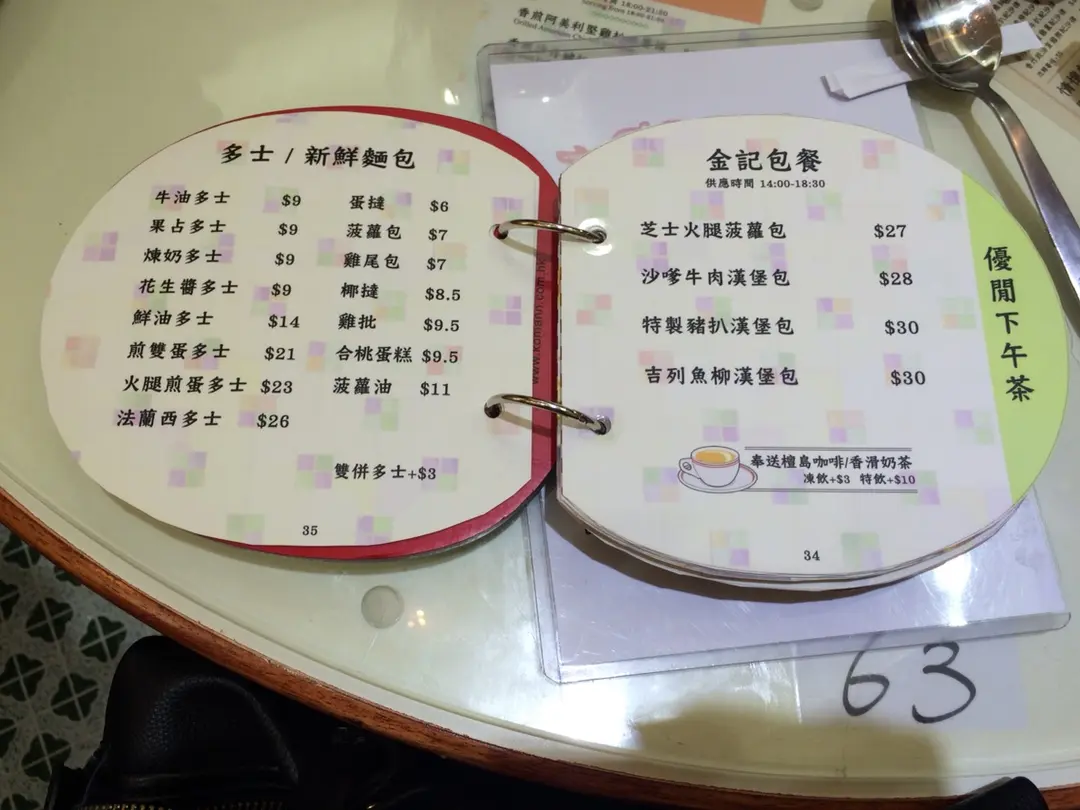 18:00-21:30
香煎阿美利堅雞扒
多士 / 新鮮麵包
牛油多士 $9
果占多士 $9
煉奶多士 $9
花生醬多士 $9
鮮油多士 $14
煎雙蛋多士 $21
火腿煎蛋多士 $23
法蘭西多士 $26
蛋撻 $6
菠蘿包 $7
雞尾包 $7
椰撻 $8.5
雞批 $9.5
合桃蛋糕 $9.5
菠蘿油 $11
雙併多士+$3
35
金記包餐
供應時間 14:00-18:30
芝士火腿菠蘿包 $27
沙嗲牛肉漢堡包 $28
特製豬扒漢堡包 $30
吉列魚柳漢堡包 $30
奉送檀島咖啡/香滑奶茶
凍飲+$3 特飲+$10
34
優閒下午茶
63